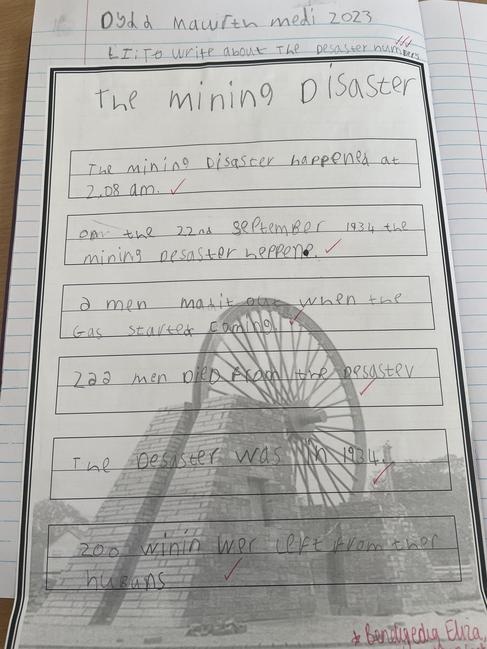 Dydd Mawrth medi 2023
LI: To write about The Desaster numbers
The mining Disaster
The mining Disaster happened at
2.08 am.
om the 22nd september 1934 the
mining Desaster heppene.
2 men mad it out when the
Gas started coming.
222 men Died from the Desaster
The Desaster was in 1934.
200 winin wer left from ther
husbans
* Bendigedig Eliza,